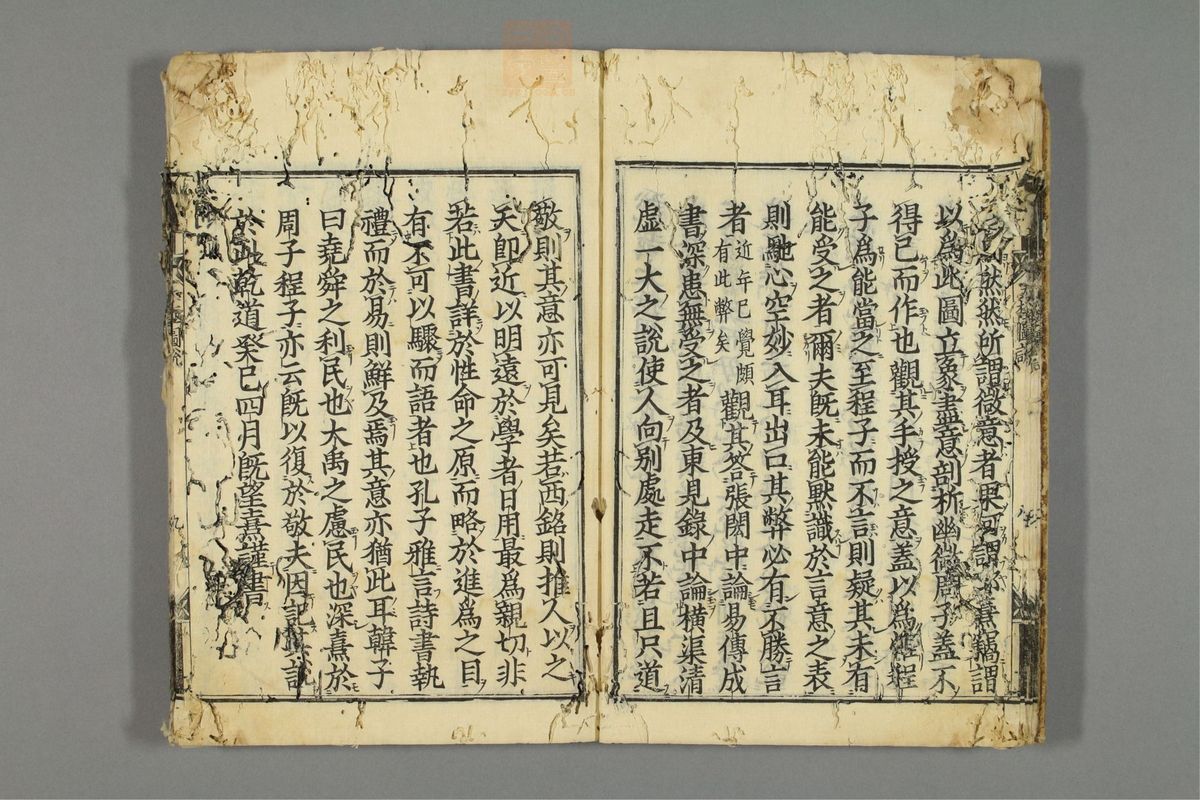 然所謂微意者果何謂熹竊謂
以爲此圖立象盡意剖析幽微周子蓋不
得已而作也觀其手授之意蓋以爲惟程
子爲能當之至程子而不言則疑其未有
能受之者爾夫旣未能默識於言意之表
則馳心空妙入耳出口其弊必有不勝言
者近年已覺頗有此弊矣觀其答張閎中論易傳成
書深患無受之者及東見錄中論橫渠清
虛一大之說使人向別處走不若且只道
敬則其意亦可見矣若西銘則推人以之
天卽近以明遠於學者日用最爲親切非
若此書詳於性命之原而略於進爲之目
有不可以驟而語者也孔子雅言詩書執
禮而於易則鮮及焉其意亦猶此耳韓子
曰堯舜之利民也大禹之慮民也深熹於
周子程子亦云旣以復於敬夫因記其說
於此乾道癸巳四月旣望熹謹書